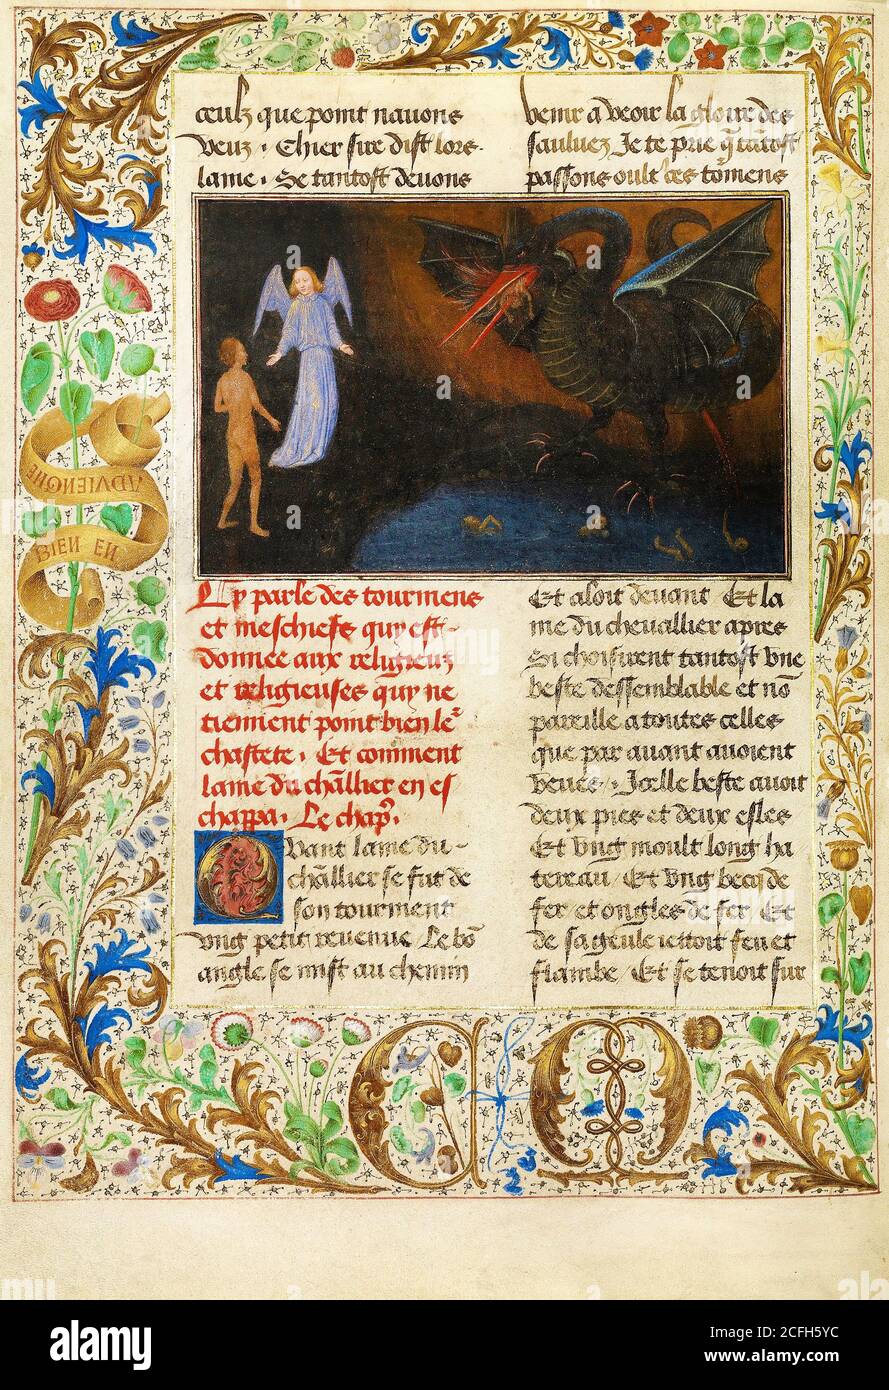 ceulz que point navons
veuz. Chier sire dist lors.
lame. Se tantost devons
venir a veoir la gloire des
sauluez Je te prie q̃ tãtost
passons oult̾ ces tõmens
Cy parle des tourmens
et meschiefs quy est
donnee aux religieux
et religieuses quy ne
tiennent point bien le²
chastete. Et comment
lame du chãllier en es
chappa. Le chap̃.
Quant lame du
challier se fut de
son tourment
vng petit reuenue Le bõ
angle se mist au chemin
Et aloit deuant Et la
me du cheuallier apres
Si choisirent tantost vne
beste dessemblable et nõ
pareille a toutes celles
que par auant auoient
veues / Icelle beste auoit
deux pies et deux esles
Et vng moult long ha
tereau / Et vng becq de
fer / et ongles de fer Et
de sa geule iettoit feu et
flambe / Et se tenoit sur
ADVIENGNE
BIEN EN
C M
alamy
alamy stock photo
2CFH5YC
www.alamy.com